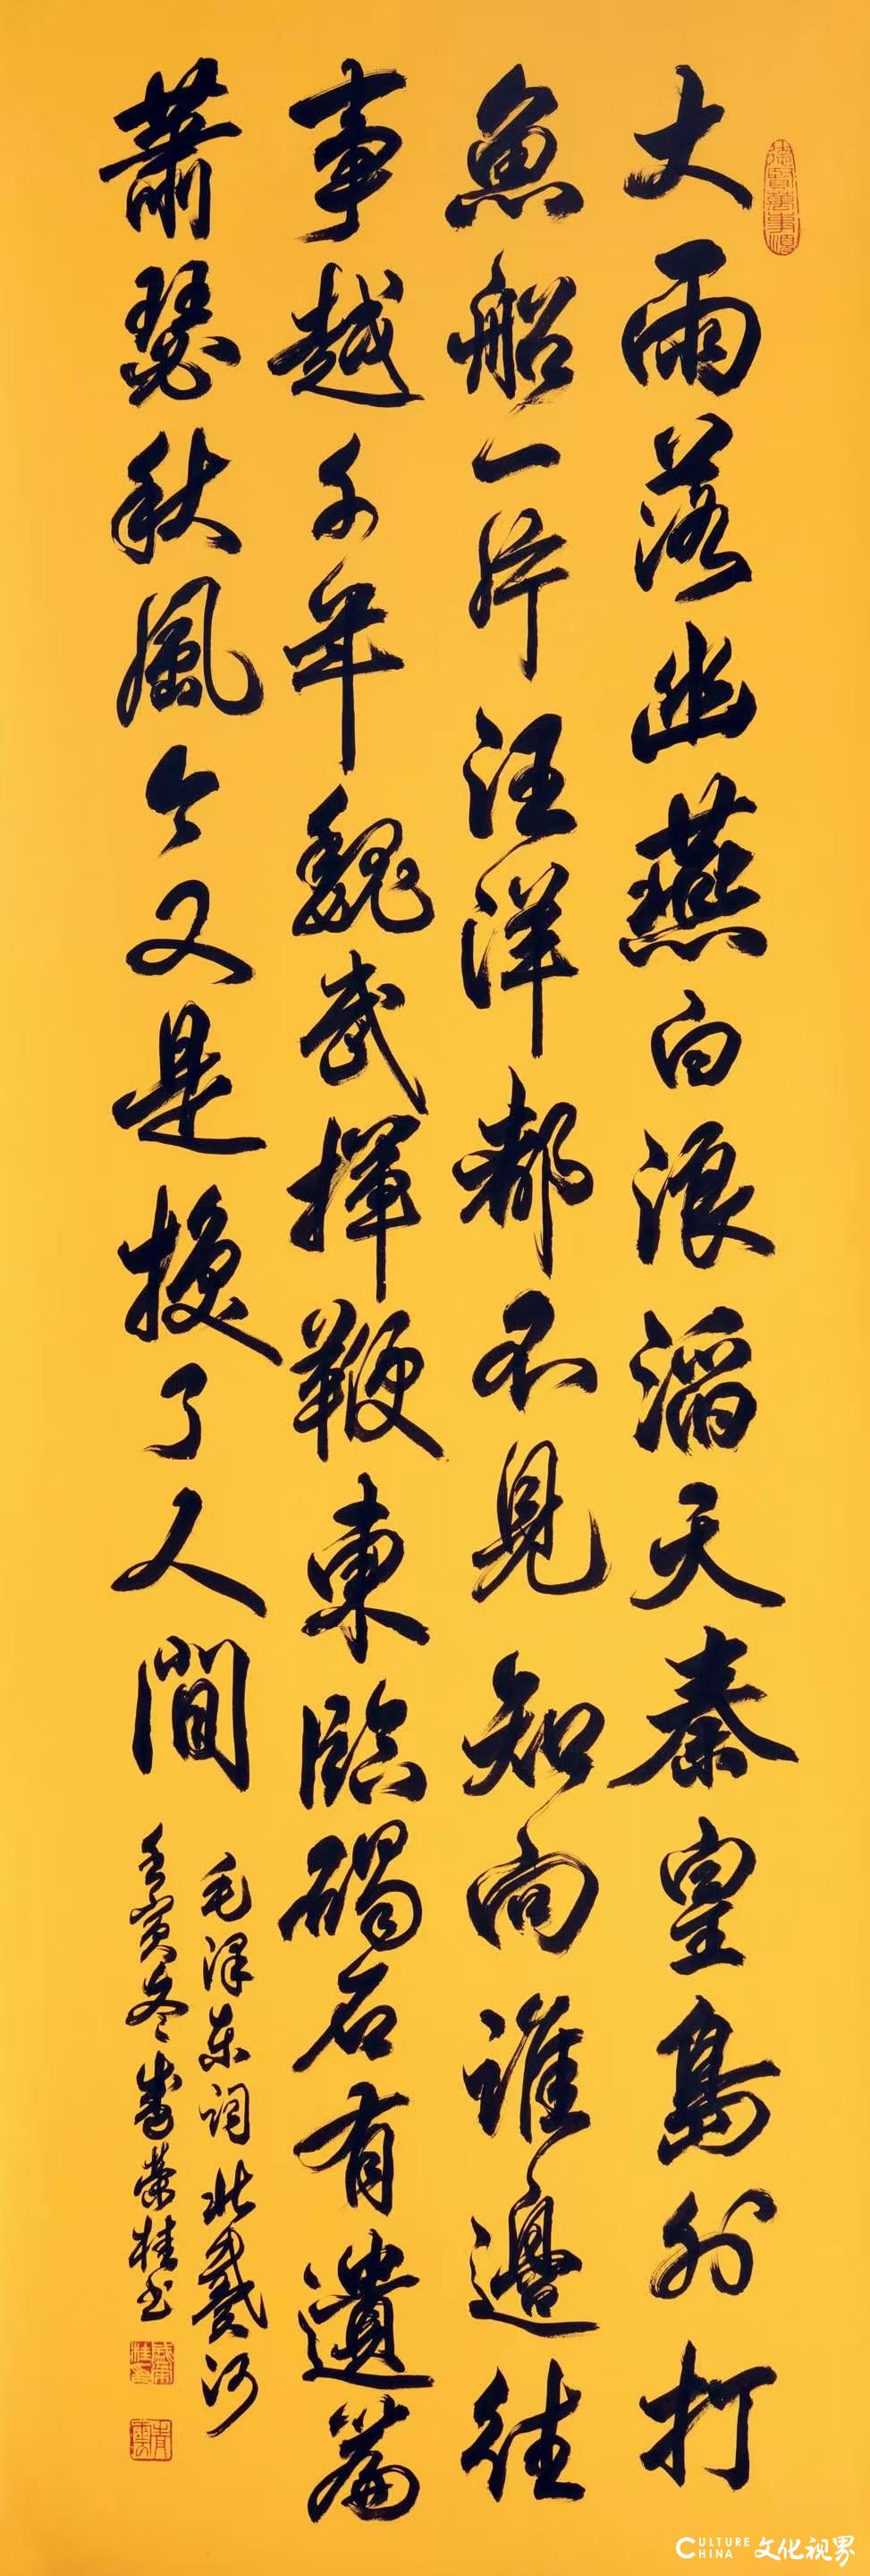 大雨落幽燕白浪滔天秦皇島外打
魚船一片汪洋都不見知向誰邊往
事越千年魏武揮鞭東臨碣石有遺篇
蕭瑟秋風今又是換了人間
毛澤东詞北戴河
壬寅冬盛榮桂书
CULTURE CHINA 文化视界